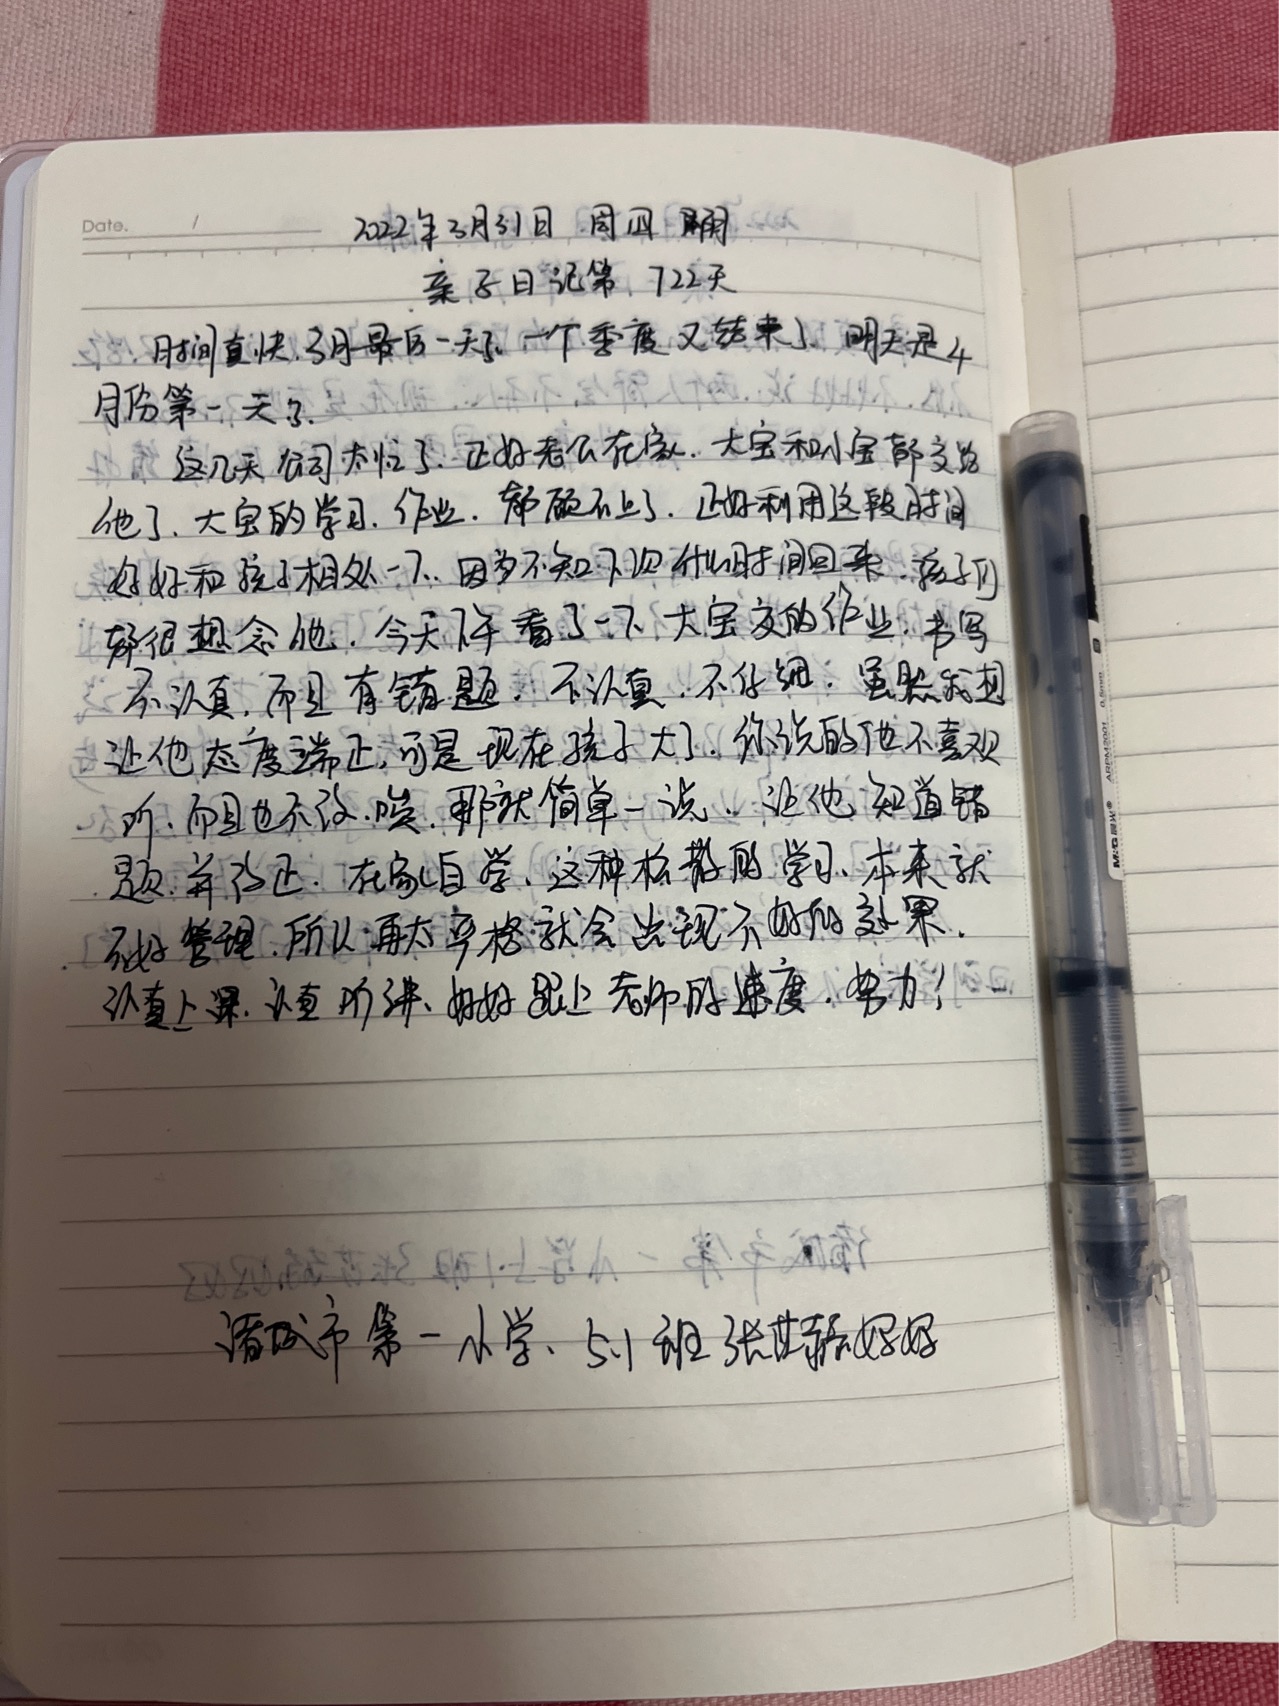 Date. /
2022年3月31日 周四 晴
亲子日记第 722天
时间真快.3月最后一天了.一个季度又结束了.明天是4
月份第一天了.
这几天公司太忙了.正好老公在家.大宝和小宝都交给
他了.大宝的学习.作业.都顾不上了.正好利用这段时间
好好和孩子相处一下.因为不知下次什么时间回来.孩子们
都很想念他.今天下午看了一下大宝交的作业.书写
不认真.而且有错题.不认真.不仔细.虽然我想
让他态度端正,可是现在孩子大了.你说的他不喜欢
听.而且也不.那就简单一说.让他知道错
题.并改正.在家自学.这种松散的学习.本来就
不好管理.所以再太严格就会出现不好的效果.
认真上课.认真听讲.好好跟上老师的速度.努力!
诸城市第一小学、5.1班张好好
M&G晨光®
ARPM2001 0.5mm